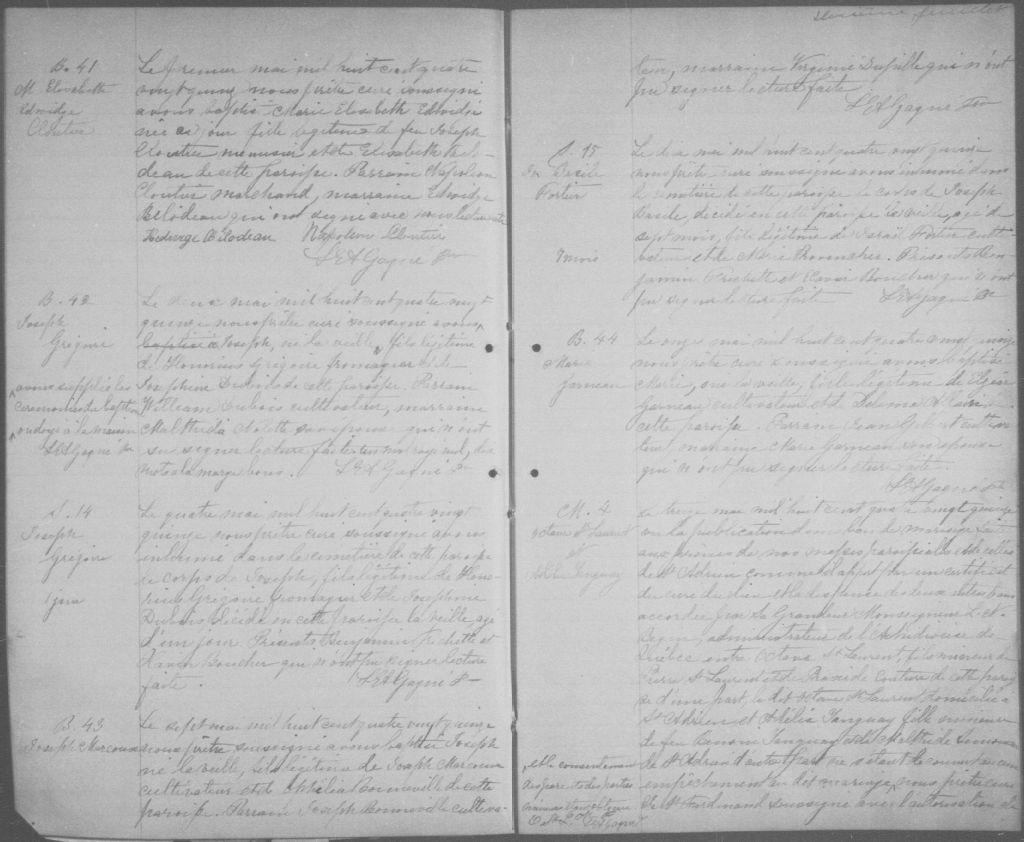 B. 41
M. Elisabeth
Edwidge
Cloutier
Le premier mai mil huit cent quatre
vingt quinze nous prêtre curé soussigné
avons baptisé Marie Elisabeth Edwidge
née ce jour fille légitime de feu Joseph
Cloutier menuisier et de Elisabeth
de cette paroisse. Parrain Napoléon
Cloutier marchand, marraine Edwidge
Bilodeau qui ont signé avec nous lecture faite
Hedwige Bilodeau Napoleon Cloutier
L.E.A Gagné Ptre
B. 42
Joseph
Grégoire
avons suppléé les
cérémonies du baptême
ondoyé à la maison
L.E.A Gagné Ptre
Le deux mai mil huit cent quatre vingt
quinze nous prêtre curé soussigné avons
baptisé Joseph, né la veille, fils légitime
de Honorius Grégoire fromager et de
Joséphine Dubois de cette paroisse. Parrain
William Dubois cultivateur, marraine
Mathilda son épouse qui n'ont
su signer lecture faite un mot rayé nul, des
mots à la marge bons. L.E.A Gagné Ptre
S. 14
Joseph
Grégoire
1 jour
Le quatre mai mil huit cent quatre vingt
quinze nous prêtre curé soussigné avons
inhumé dans le cimetière de cette paroisse
le corps de Joseph, fils légitime de Hono-
rius Grégoire fromager et de Josephine
Dubois, décédé en cette paroisse la veille, agé
d'un jour. Présents Benjamin Frechette et
Xavier Boucher qui n'ont pu signer lecture
faite. L.E.A Gagné Ptre
B. 43
Joseph Marcoux
Le sept mai mil huit cent quatre vingt quinze
nous prêtre soussigné avons baptisé Joseph
né la veille, fils légitime de Joseph Marcoux
cultivateur et de Ophélia Bonneville de cette
paroisse. Parrain Joseph Bonneville cultiva-
feuillet
teur, marraine Virginie qui n'ont
pu signer lecture faite.
L.E.A Gagné Ptre
S. 15
Jos Basile
Fortier
7 mois
Le dix mai mil huit cent quatre vingt quinze
nous prêtre curé soussigné avons inhumé dans
le cimetière de cette paroisse le corps de Joseph
Basile, décédé en cette paroisse la veille, agé de
sept mois, fils légitime de Israël Fortier culti-
vateur et de Marie . Présents Ben-
jamin Frechette et Xavier Boucher qui n'ont
pu signer lecture faite L.E.A Gagné Ptre
B. 44
Marie
Garneau
Le onze mai mil huit cent quatre vingt quinze
nous prêtre curé soussigné avons baptisé
Marie, née la veille, fille légitime de Elzéar
Garneau cultivateur et de Delima de
cette paroisse. Parrain Jean cultiva
teur, marraine Marie Garneau son épouse
qui n'ont pu signer lecture faite.
L.E.A Gagné Ptre
M. 4
Octave St Laurent
et
Atélia Tanguay
Le treize mai mil huit cent quatre vingt quinze
vu la publication d'un ban de mariage faite
aux prônes de nos messes paroissiales et de celles
de St Adrien comme il appert par un certificat
du curé du lieu et la dispense de deux autres bans
accordée par Sa Grandeur Monseigneur L.N.
Bégin, administrateur de l'Archidiocèse de
Québec entre Octave St Laurent, fils mineur de
Pierre St Laurent et de Praxède Couture de cette parois
se d'une part, le dit Octave St Laurent, domicilié à
St Adrien et Atélia Tanguay fille mineure
de feu Benoni Tanguay et de Mathilde
de St Adrien d'autre part ne s'étant découvert aucun
empêchement au dit mariage, nous prêtre curé
de St Ferdinand soussigné avec l'autorisation de
et le consentement
des parents des parties
L.E.A Gagné